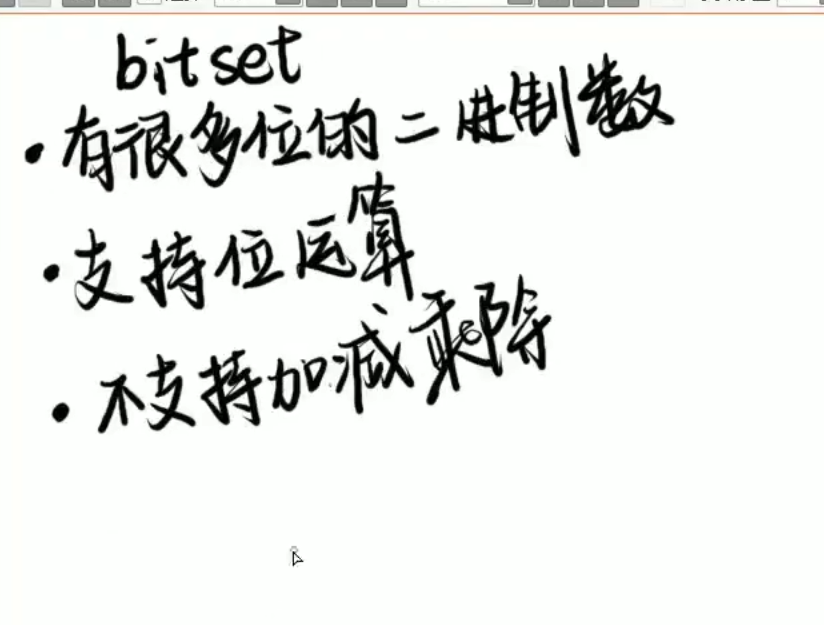 bitset
•有很多位的二进制数
•支持位运算
•不支持加减乘除